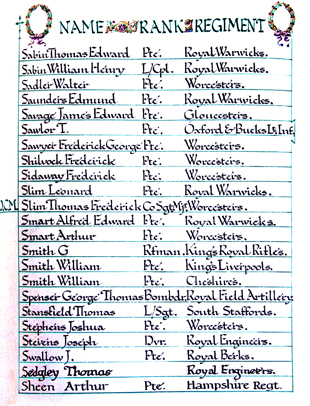 NAME RANK REGIMENT
Sabin Thomas Edward Pte. Royal Warwicks.
Sabin William Henry L/Cpl. Royal Warwicks.
Sadler Walter Pte. Worcesters.
Saunders Edmund Pte. Royal Warwicks.
Savage James Edward Pte. Gloucesters.
Sawlor T. Pte. Oxford & Bucks Lt. Inf.
Sawyer Frederick George Pte. Worcesters.
Shilvock Frederick Pte. Worcesters.
Sidaway Frederick Pte. Worcesters.
Slim Leonard Pte. Royal Warwicks.
Slim Thomas Frederick Co Sgt Mjr Worcesters.
Smart Alfred Edward Pte. Royal Warwicks.
Smart Arthur Pte. Worcesters.
Smith G Rfman. King's Royal Rifles.
Smith William Pte. King's Liverpools.
Smith William Pte. Cheshires.
Spenser George Thomas Bombdr. Royal Field Artillery.
Stansfield Thomas L/Sgt. South Staffords.
Stephens Joshua Pte. Worcesters.
Stevens Joseph Dvr. Royal Engineers.
Swallow J. Pte. Royal Berks.
Sedgley Thomas Royal Engineers.
Sheen Arthur Pte. Hampshire Regt.